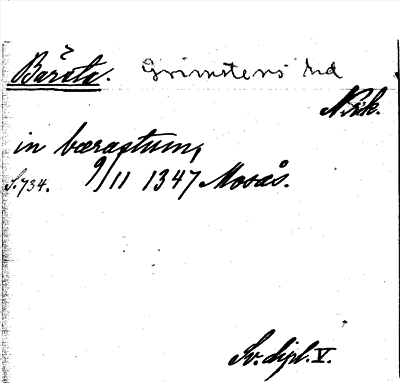 Bersta. Grimstens hd
Nrk.
in bærastum,
S. 734. 9/11 1347 Mosås.
Sv. dipl. V.